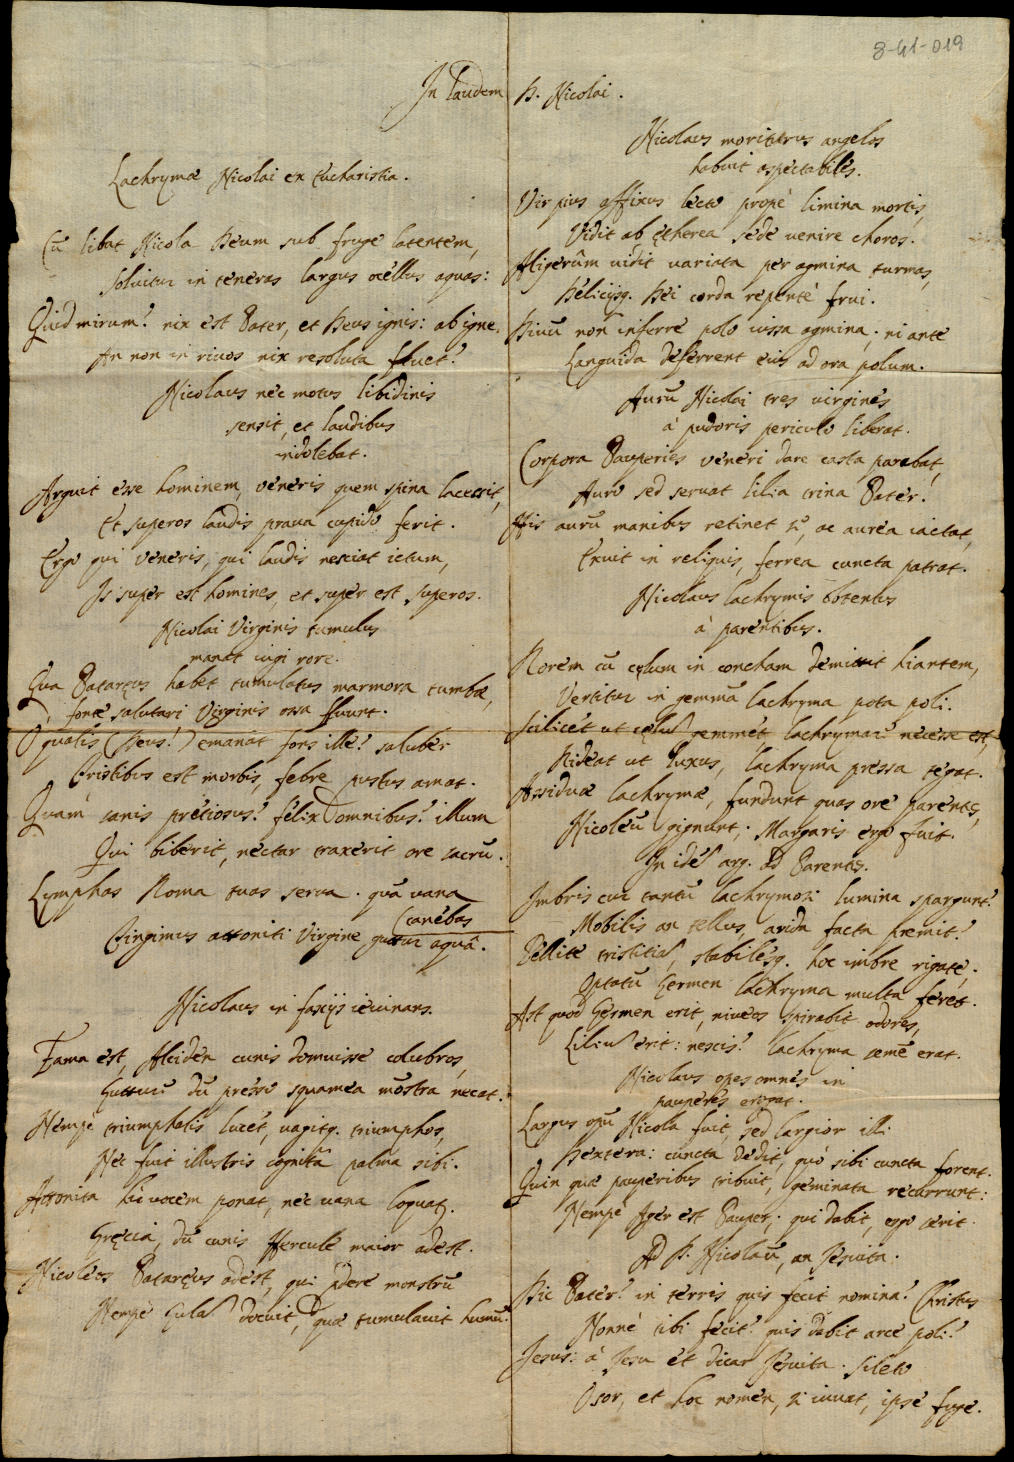 8-41-019
In laudem D. Nicolai.
Lachrymæ Nicolai ex Eucharistia.
Cū libat Nicola Deum sub fruge latentem,
Soluitur in teneras largus ocellus aquas:
Quid mirum? nix est Pater, et Deus ignis: ab igne
An non in riuos nix resoluta fluet?
Nicolaus nec motus libidinis
sensit, et laudibus
indolebat.
Arguit esse hominem, veneris quem spina lacessit,
Et superos laudis praua cupido ferit.
Ergo qui veneris, qui laudis nesciat ictum,
Is super est homines, et super est superos.
Nicolai Virginis tumulus
manat iugi rore.
Qua Patarçus habet tumulatus marmora tumbæ,
fonte salutari Virginis ossa fluunt.
O qualis (Deus!) emanat fons ille! saluber
Tristibus est morbis, febre pustus amat.
Quam sanis pretiosus! felix omnibus! illum
Qui biberit, nectar traxerit ore sacrū.
Lymphas Roma tuas serua. quā vana canebas
Tingimus attoniti Virgine guttur aquā.
Nicolaus in fascijs ieiunans.
Fama est, Alciden cunis domuisse colubros,
Guttur dū presso squamea mōstra necat.
Nempe triumphatis lucet, vagitq. triumphos,
Nec fuit illustris cognita palma sibi.
Attonita hic vocem ponat, nec vana loquatr.
Gręcia, dū cunis Hercule maior adest.
Nicoleos Patarçus adest, qui edere monstrū
Nempe Gulā docuit, quæ tumulauit humū.
Nicolaus moriturus angelos
habuit aspectabiles.
Vir pius affixus lecto propè limina mortis,
Vidit ab ętherea sede uenire choros.
Aligerûm uidit uariata per agmina turmas,
Delicijsq. Dei corda repentè frui.
Diuū non inferre polo iussa agmina; ni ante
Languida deferrent eius ad ora polum.
Aurū Nicolai tres uirgines
à pudoris periculo liberat.
Corpora Pauperies veneri dare casta parabat,
Auro sed seruat lilia trina Pater.
His aurū manibus retinet q̄, ac aurea iactat,
Exuit in reliquis, ferrea cuncta patrat.
Nicolaus lachrymis obtentus
à parentibus.
Rorem cū cęlum in concham demittit hiantem,
Vertitur in gemmā lachryma pota poli.
Scilicet ut cęlū gemmet, lachrymari necesse est,
Rideat ut luxus, lachryma pressa tegat.
Assiduæ lachrymæ, fundunt quas ore parentes,
Nicoleū gignunt; Margaris ergo fuit.
In idē arg. Ad Parentes.
Imbris cur tantū lachrymosi lumina spargunt?
Mobilis an tellus, arida facta fremit?
Pellite tristitiā, stabilesq. hoc imbre rigate.
Optatū Germen lachryma multa feret.
Ast quod Germen erit, niueos spirabit odores,
Liliū erit: nescis? lachryma semē erat.
Nicolaus opes omnes in
pauperes erogat.
Largus opū Nicola fuit, sed largior illi
Dextera: cuncta dedit, quò sibi cuncta forent.
Quin quæ pauperibus tribuit, geminata recurrunt:
Nempe Ager est Pauper; qui dabit, ergo serit.
Ad D. Nicolaū, an Jesuita.
Dic Pater! in terris quis fecit nomina? Christus
Nonne tibi fecit? quis dabit arce poli?
Jesus: à Jesu et dicar Jesuita. sileto
Osor, et hoc nomen, si iuuat, ipse fuge.